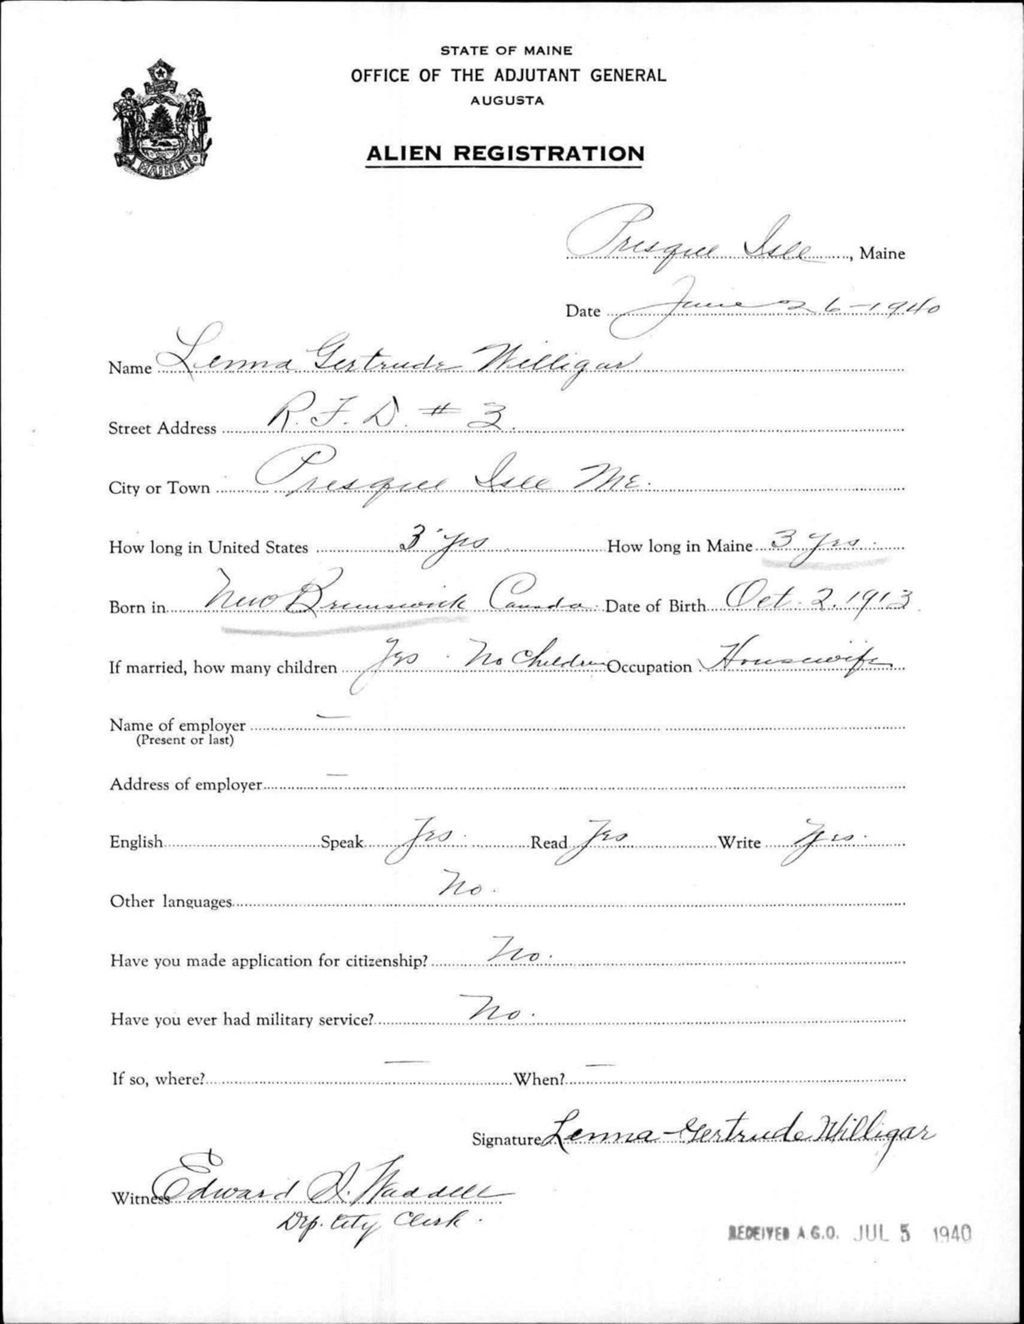 STATE OF MAINE
OFFICE OF THE ADJUTANT GENERAL
AUGUSTA
ALIEN REGISTRATION
MAINE
Presque Isle, Maine
Date June 26-1940
Name Lenna Gertrude Willigar
Street Address R.F.D. # 3.
City or Town Presque Isle Me.
How long in United States 3 yrs How long in Maine 3 yrs.
Born in New Brunswick Canada. Date of Birth Oct. 2, 1913.
If married, how many children Yes. No Children Occupation Housewife
Name of employer —
(Present or last)
Address of employer —
English Speak Yes. Read Yes Write Yes.
Other languages No.
Have you made application for citizenship? No.
Have you ever had military service? No.
If so, where? — When? —
Signature Lenna Gertrude Willigar
Witness Edward D. Waddell
Dep. City Clerk.
RECEIVED A.G.O. JUL 5 1940